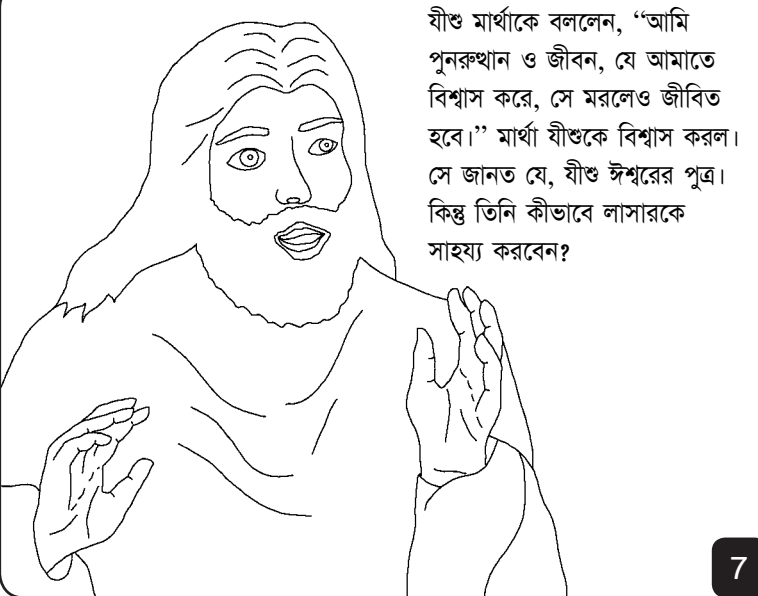 যীশু মার্থাকে বললেন, ‘‘আমি
পুনরুত্থান ও জীবন, যে আমাতে
বিশ্বাস করে, সে মরলেও জীবিত
হবে।’’ মার্থা যীশুকে বিশ্বাস করল।
সে জানত যে, যীশু ঈশ্বরের পুত্র।
কিন্তু তিনি কীভাবে লাসারকে
সাহয্য করবেন?
7